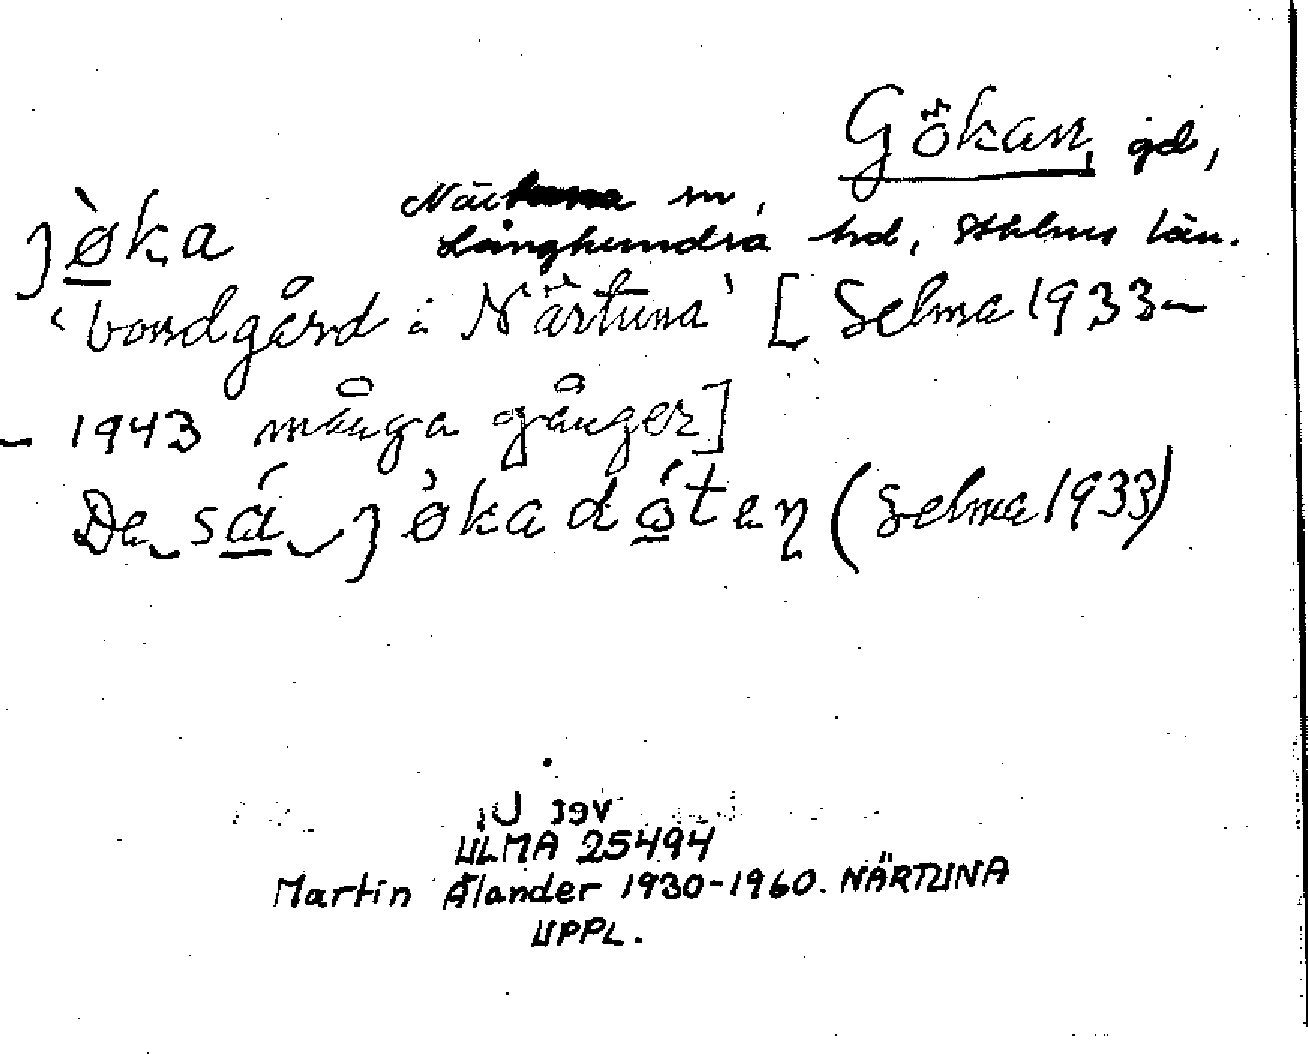 Gökan, gd,
Närtuna sn,
Långhundra hd, Sthlms län.
jø̀ka
‘bondgård i Närtuna’ [Selma 1933–
– 1943 många gånger]
De sá jøka dóten (Selma 1933)
ULMA 25494
Martin Ålander 1930-1960. NÄRTUNA
UPPL.